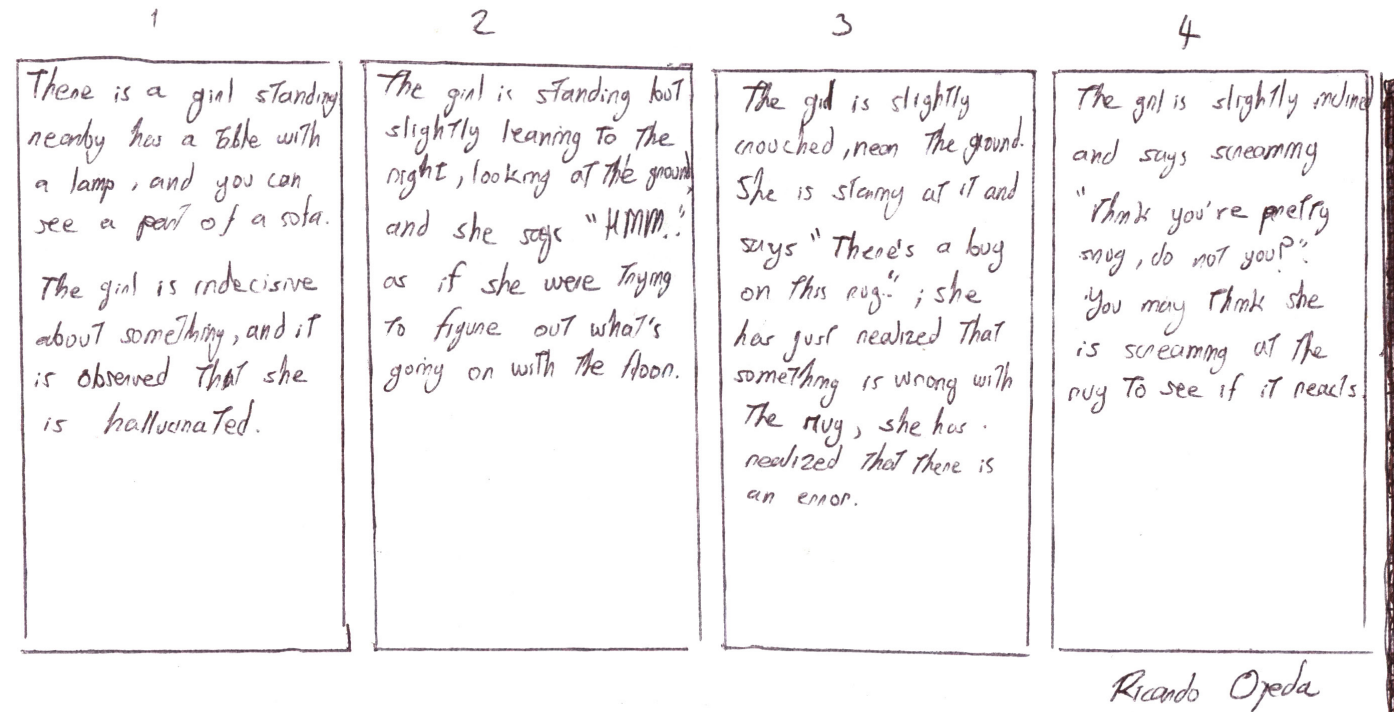 1
There is a girl standing
nearby has a table with
a lamp, and you can
see a part of a sofa.
The girl is indecisive
about something, and it
is observed that she
is hallucinated.
2
The girl is standing but
slightly leaning to the
right, looking at the ground,
and she says "HMM."
as if she were trying
to figure out what's
going on with the floor.
3
The girl is slightly
crouched, near the ground.
She is staring at it and
says "There's a bug
on this rug."; she
has just realized that
something is wrong with
the rug, she has
realized that there is
an error.
4
The girl is slightly inclined
and says screaming
"Think you're pretty
snug, do not you?".
You may think she
is screaming at the
rug to see if it reacts.
Ricardo Ojeda